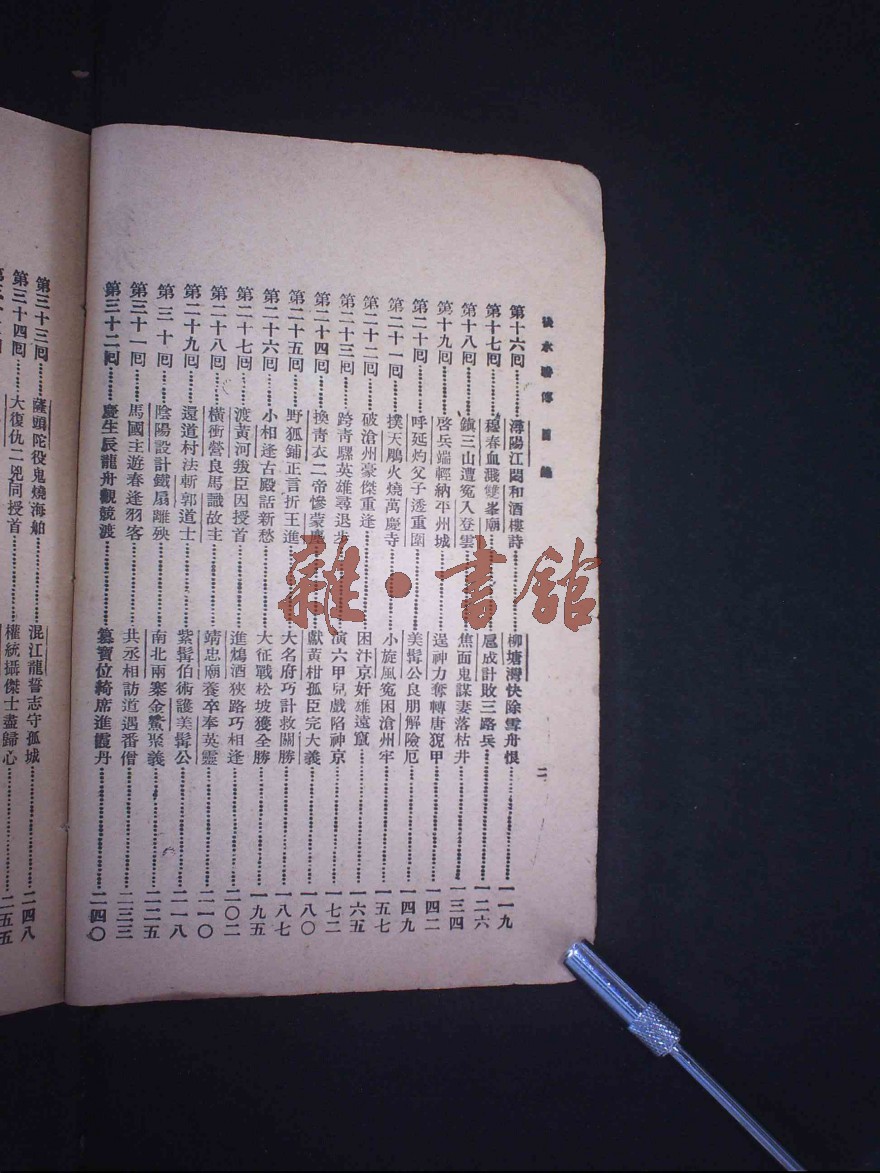 後水滸傳目錄
二
第十六回……潯陽江悶和酒樓詩……柳塘灣快除雪舟恨……一一九
第十七回……穆春血濺雙峯廟……扈成計敗三路兵……一二六
第十八回……鎭三山遭冤入登雲……焦面鬼謀妻落枯井……一三四
第十九回……啓兵端輕納平州城……逞神力奪轉唐猊甲……一四二
第二十回……呼延灼父子透重圍……美髯公良朋解險厄……一四九
第二十一回……撲天鵰火燒萬慶寺……小旋風冤困滄州牢……一五七
第二十二回……破滄州豪傑重逢……困汴京奸雄遠竄……一六五
第二十三回……跨青騾英雄尋退步……演六甲兒戲陷神京……一七二
第二十四回……換青衣二帝慘蒙塵……獻黃柑孤臣完大義……一八〇
第二十五回……野狐鋪正言折王進……大名府巧計救關勝……一八七
第二十六回……小相逢古殿話新愁……大征戰松坡獲全勝……一九五
第二十七回……渡黃河叛臣因授首……進鴆酒狹路巧相逢……二〇二
第二十八回……橫衝營良馬識故主……靖忠廟養卒奉英靈……二一〇
第二十九回……還道村法斬郭道士……紫髯伯術護美髯公……二一八
第三十回……陰陽設計鐵扇離殃……南北兩寨金鰲聚義……二二五
第三十一回……馬國主遊春逢羽客……共丞相訪道遇番僧……二三三
第三十二回……慶生辰龍舟觀競渡……篡寶位綺席進霞丹……二四〇
第三十三回……薩頭陀役鬼燒海舶……混江龍誓志守孤城……二四八
第三十四回……大復仇二兇同授首……權統攝傑士盡歸心……二五五
雜·書館